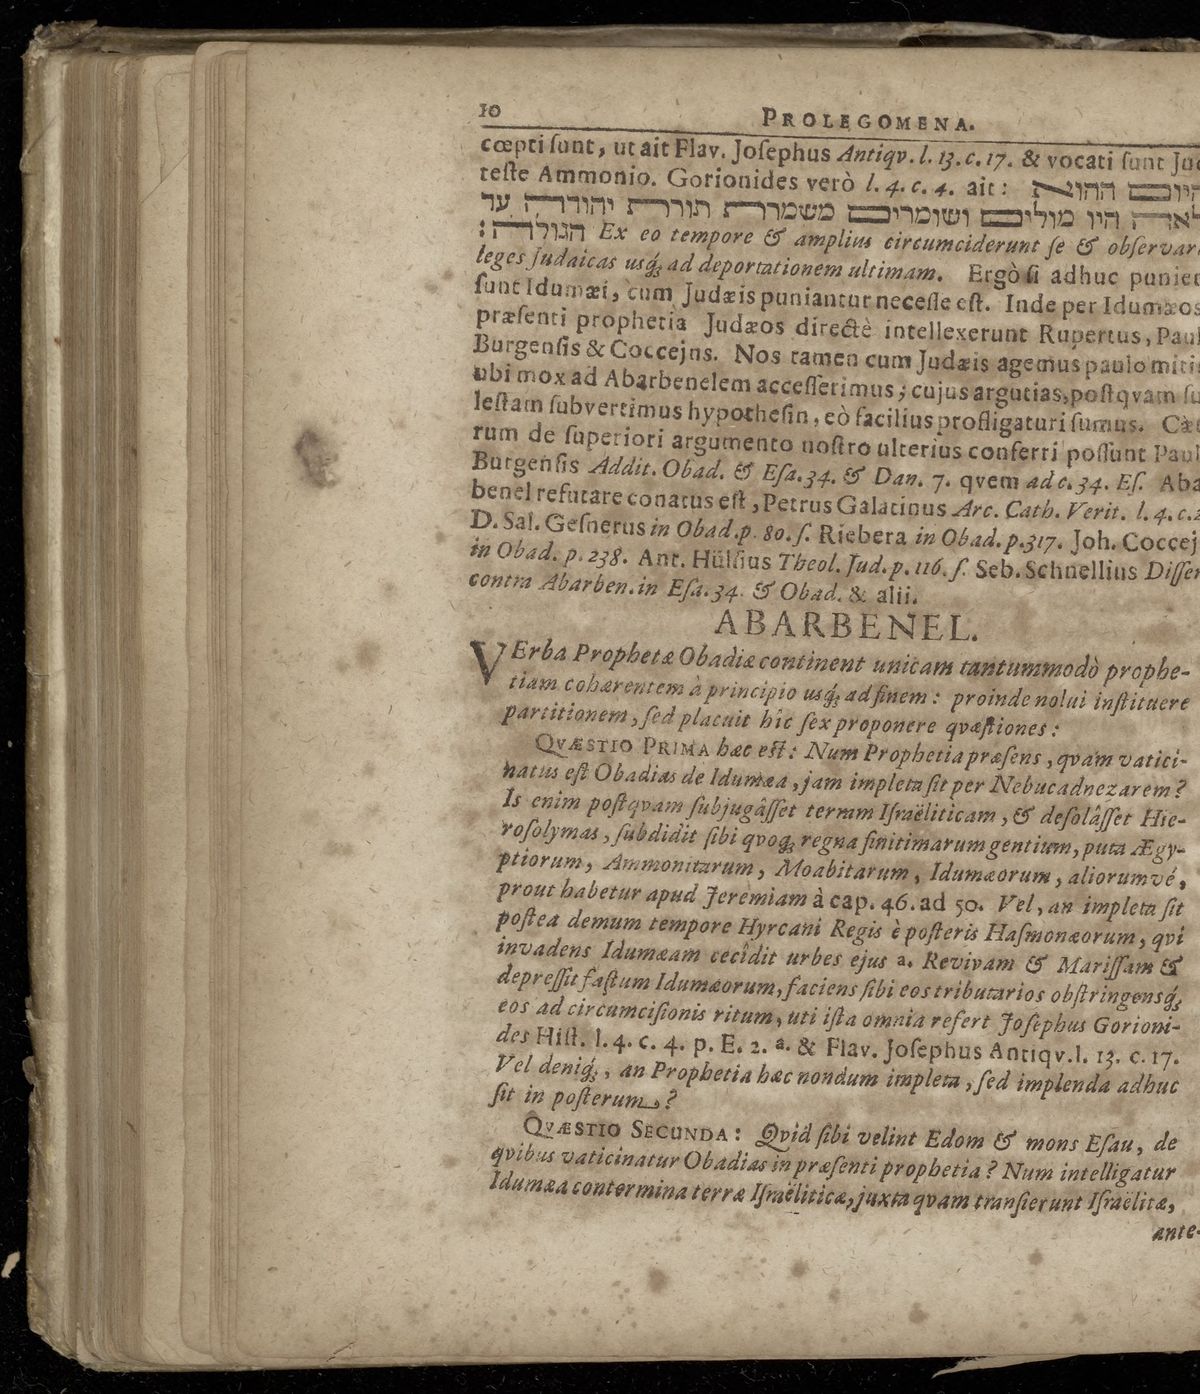 10 PROLEGOMENA.
cœpti ſunt, ut ait Flav. Joſephus Antiqv. l. 13. c. 17. & vocati ſunt Jud
teſte Ammonio. Gorionides verò l. 4. c. 4. ait: היום ההוא
היו מולים ושומרים משמרת תורת יהודה עד
הגולה: Ex eo tempore & amplius circumciderunt ſe & obſervar
leges Judaicas usq́; ad deportationem ultimam. Ergò ſi adhuc punien
ſunt Idumæi, cum Judæis puniantur neceſſe eſt. Inde per Idumæos
præſenti prophetia Judæos directè intellexerunt Rupertus, Paul
Burgenſis & Coccejus. Nos tamen cum Judæis agemus paulo miti
ubi mox ad Abarbenelem acceſſerimus; cujus argutias, poſtqvam ſu
leſtam ſubvertimus hypotheſin, eò facilius profligaturi ſumus. Cæt
rum de ſuperiori argumento noſtro ulterius conferri poſſunt Paul
Burgenſis Addit. Obad. & Eſa. 34. & Dan. 7. qvem ad c. 34. Eſ. Aba
benel refutare conatus eſt, Petrus Galatinus Arc. Cath. Verit. l. 4. c.
D. Sal. Geſnerus in Obad. p. 80. ſ. Riebera in Obad. p. 317. Joh. Coccej
in Obad. p. 238. Ant. Hülſius Theol. Jud. p. 116. ſ. Seb. Schnellius Diſſer
contra Abarben. in Eſa. 34. & Obad. & alii.
ABARBENEL.
VErba Prophetæ Obadiæ continent unicam tantummodò prophe-
tiam cohærentem à principio usq́; ad finem: proinde nolui inſtituere
partitionem, ſed placuit hîc ſex proponere qvæſtiones:
QVÆSTIO PRIMA hæc eſt: Num Prophetia præſens, qvam vatici-
natus eſt Obadias de Idumæa, jam impleta ſit per Nebucadnezarem?
Is enim poſtqvam ſubjugâſſet terram Iſraëliticam, & deſolâſſet Hie-
roſolymas, ſubdidit ſibi qvoq; regna finitimarum gentium, puta Ægy-
ptiorum, Ammonitarum, Moabitarum, Idumæorum, aliorumvé,
prout habetur apud Jeremiam à cap. 46. ad 50. Vel, an impleta ſit
poſtea demum tempore Hyrcani Regis è poſteris Haſmonæorum, qvi
invadens Idumæam cecîdit urbes ejus a. Revivam & Mariſſam &
depreſſit faſtum Idumæorum, faciens ſibi eos tributarios obſtringensq́;
eos ad circumciſionis ritum, uti iſta omnia refert Joſephus Gorioni-
des Hiſt. l. 4. c. 4. p. E. 2. a. & Flav. Joſephus Antiqv. l. 13. c. 17.
Vel deniq́;, an Prophetia hæc nondum impleta, ſed implenda adhuc
ſit in poſterum?
QVÆSTIO SECUNDA: Qvid ſibi velint Edom & mons Eſau, de
qvibus vaticinatur Obadias in præſenti prophetia? Num intelligatur
Idumæa contermina terræ Iſraëliticæ, juxta qvam tranſierunt Iſraëlitæ,
ante-